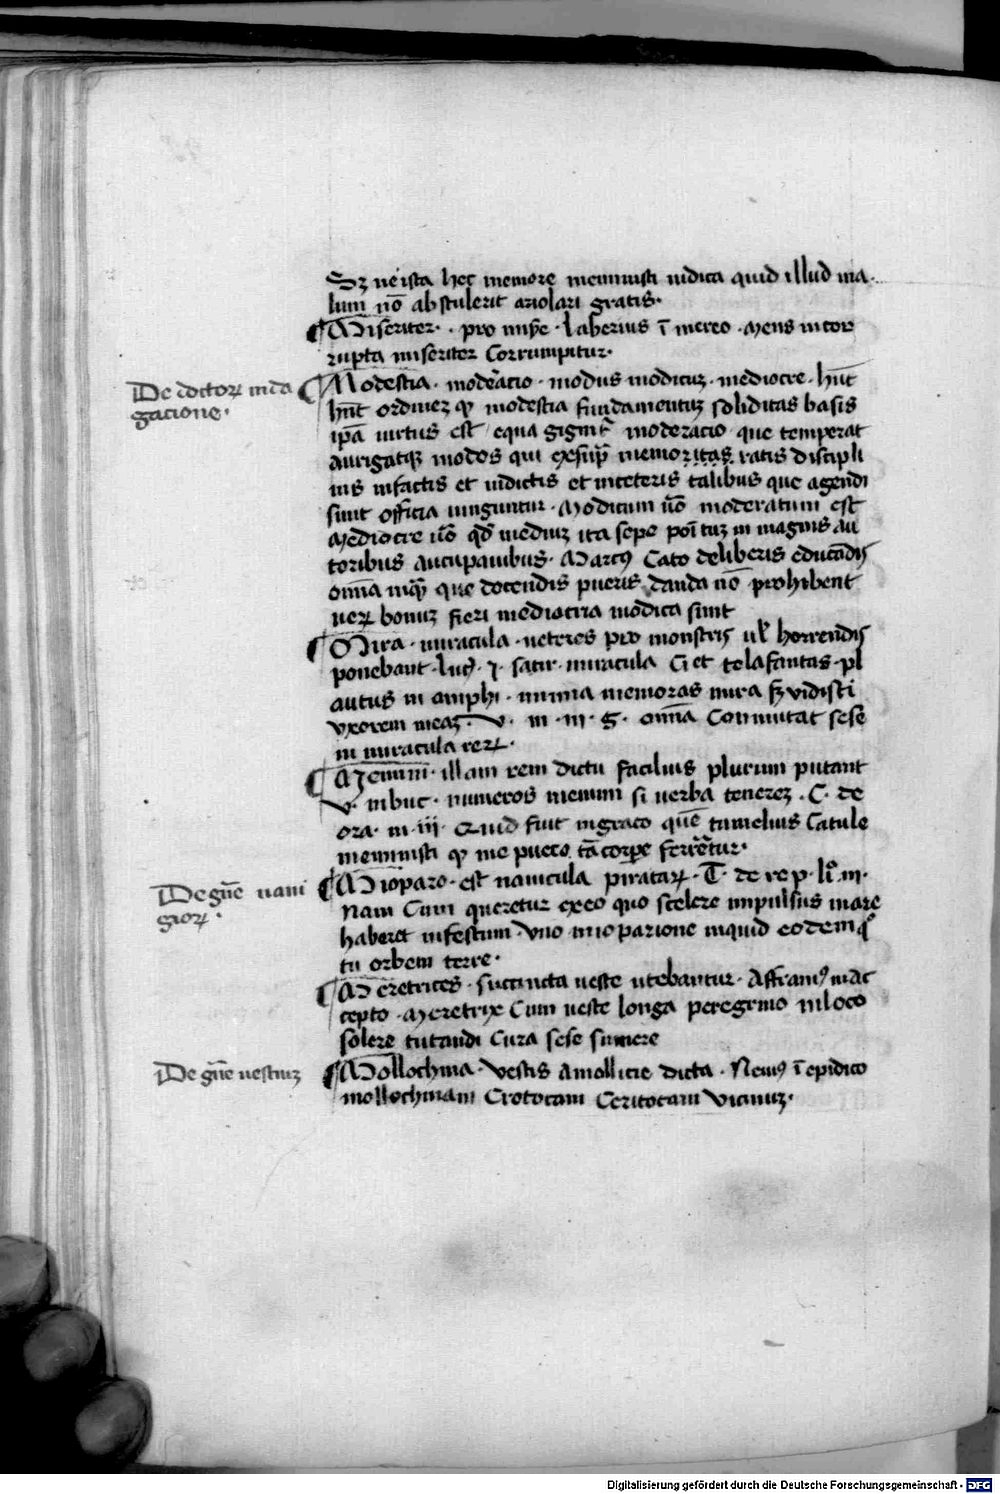 Sꝫ ne ista hec memore meministi iudica quid illud ma
lum nō abstulerit ariolari gratis·
Miseriter· pro mise· Laberius ī mereo· Mens incor
rupta miseriter Corrumpitur·
De doctoꝝ inda
gacione·
Modestia· modeᷓacio· modus modicuꝫ· mediocre· hn̄t
hn̄t ordineꝫ qꝫ modestia fundamentuꝫ soliditas basis
ip̄a uirtus est equa gignit᷑ moderacio que temperat
aurigatqꝫ modos qui memoritas ratis discipli
nis infactis et indictis et inceteris talibus que agendi
sunt officia iunguntur· Modicum uō moderatum est
Mediocre uō qd̄ mediuꝫ ita sepe poītuꝫ in magnis au
toribus aucupauibus· Marcꝰ Cato deliberis educādis
om̄ia inqͣ que docendis pueris danda nō prohibent
ueꝝ bonuꝫ fieri mediocria modica sunt
Mira· miracula· ueteres pro monstris uł horrendis
ponebant· satir· miracula Ci et tolafantas· pl
autus in amphi· nimia memoras mira sꝫ vidisti
vxorem meaꝫ· V· m· m· g· om̄ia Conmutat sese
in miracula reꝝ·
Memini· illam rem dictu facilius plurum putant
V· inbuc· numeros memini si uerba tenereꝫ· C· de
ora· m· iij· Quid fuit ingraco quē tumelius Catule
meministi qꝫ me puero tā corpe ferretur·
De gn̄e naui
gioꝝ·
Mioparo· est nauicula pirataꝝ· T· de re p· li· m·
Nam Cum queretur exeo quo scelere impulsus mare
haberet infestum· Vno mioparione inquid eodem qͦ
tu orbem terre·
Meretrices· succincta ueste utebantur· Affraniꝰ inac
cepto· Meretrix Cum ueste longa peregrino inloco
solere tutandi Cura sese sumere
De gn̄e uestiuꝫ
Mollochina· vestis Amollicie dicta· Neuiꝰ ī epidico
mollochinam Crotocam Ceritocam vicinuꝫ·
Digitalisierung gefördert durch die Deutsche Forschungsgemeinschaft · DFG